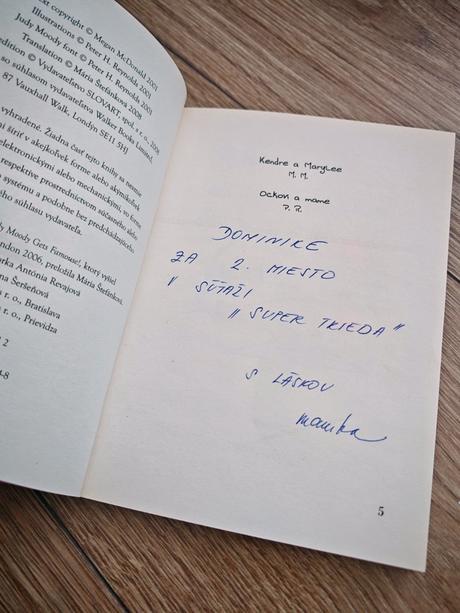 ext copyright © Megan McDonald 2001
Illustrations © Peter H. Reynolds 2001
Judy Moody font © Peter H. Reynolds 2001
Translation © Mária Štefánková 2008
edition © Vydavateľstvo SLOVART, spol. s r. o., 2008
so súhlasom vydavateľstva Walker Books Limited,
87 Vauxhall Walk, Londýn SE11 5HJ
vyhradené. Žiadna časť tejto knihy sa nesmie
ani šíriť v akejkoľvek forme alebo akýmkoľvek
elektronickými alebo mechanickými, vo forme
respektíve prostredníctvom súčasného alebo
systému a podobne bez predchádzajúceho
ého súhlasu vydavateľa.
dy Moody Gets Famouse!, ktorý vyšiel
ondon 2006, preložila Mária Štefánková.
rka Antónia Revajová
na Šeršeňová
r. o., Bratislava
r. o., Prievidza
2
4-8
Kendre a MaryLee
M. M.
Ockovi a mame
P. R.
DOMINIKE
ZA 2. MIESTO
V SÚŤAŽI
„SUPER TRIEDA"
S LÁSKOU
mamka
5